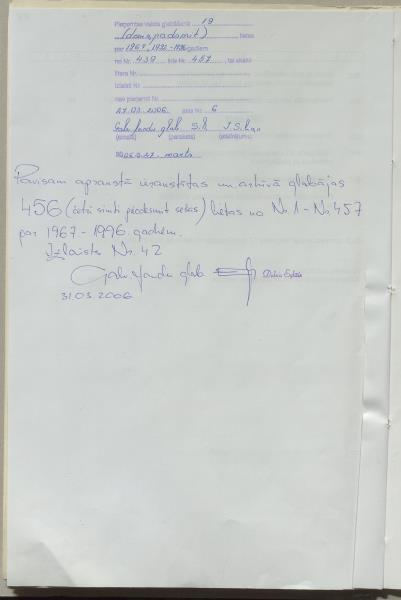 Pieņemtas valsts glabāšanā 19
(deviņpadsmit) lietas
par 1967, 1992-1996 gadiem
no Nr. 439 līdz Nr. 457, tai skaitā
litera Nr.
izlaisti Nr.
nav pieņemti Nr.
27.03.2006 akta No 6
Galv. fondu glab.
(amats) (paraksts) (atšifrējums)
2006.g.27. marts
Pavisam aprakstā ierakstītas un arhīvā glabājas
456 (četri simti piecdesmit sešas) lietas no Nr.1 - Nr.457
par 1967 - 1996. gadiem.
Izlaists Nr. 42
Galv. fondu glab.
31.03.2006